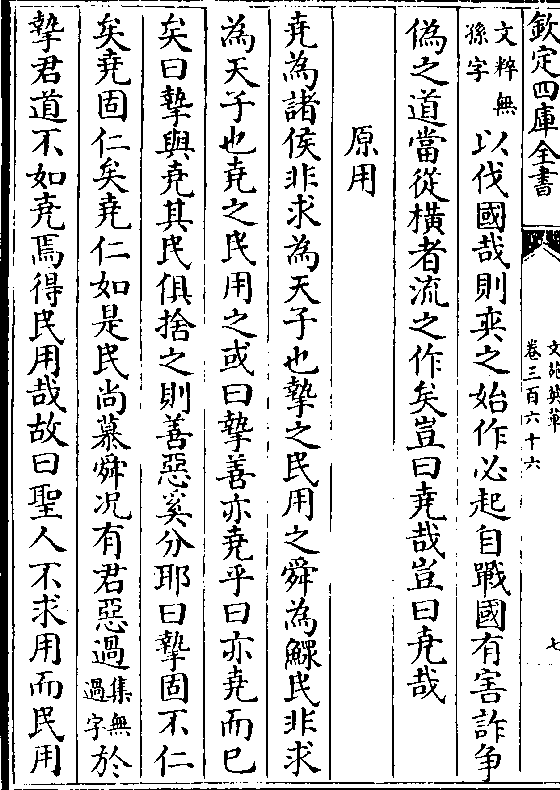 欽定四庫全書
文苑英華
卷三百六十六
七
文粹無
孫字
以伐國哉則奕之始作必起自戰國有害詐争
偽之道當從横者流之作矣豈曰堯哉豈曰堯哉
原用
堯為諸侯非求為天子也摯之民用之舜為鰥民非求
為天子也堯之民用之或曰摯善亦堯乎曰亦堯而已
矣曰摯與堯其民俱捨之則善惡奚分耶曰摯固不仁
矣堯固仁矣堯仁如是民尚慕舜况有君惡過集無過字於
摯君道不如堯焉得民用哉故曰聖人不求用而民用